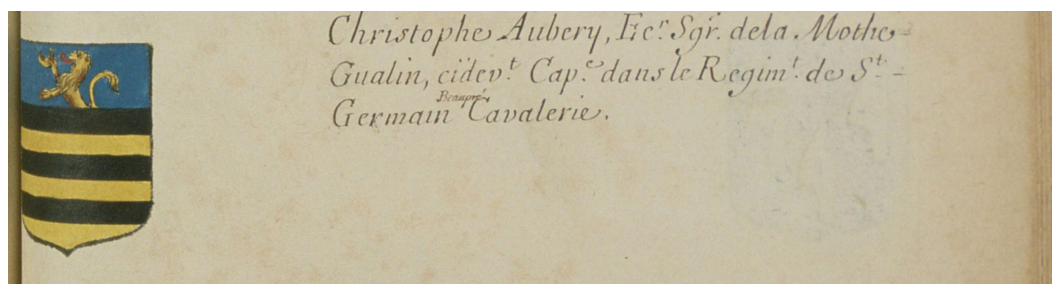 Christophe Aubery, Ecr. Sgr. dela Mothe-
Gualin, cidevt. Cape. dans le Regimt. de St.-
Beaupré,
Germain Cavalerie.